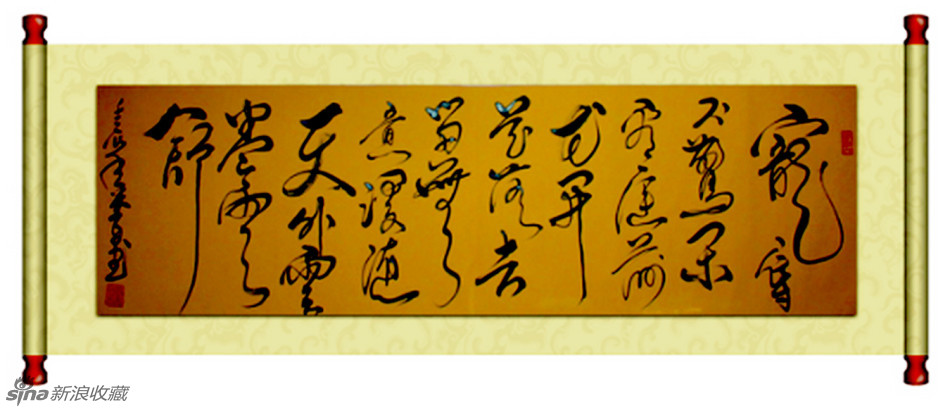 寵辱
不驚闲
看庭前
花开
花落去
留無
意漫随
天外雲
卷雲
舒
sina新浪收藏